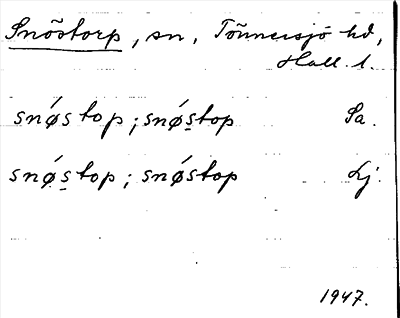 Snöstorp, sn, Tönnersjö hd,
Hall. l.
snǿstop; snǿs̱top Sa.
snǿ̣s̱top; snǿstop Lj.
1947.